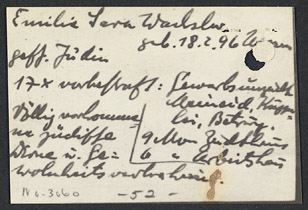 Emilie Sara Wachsler
geb. 18.2.96 Wien
gesch. Jüdin
17 x vorbestraft: Gewerbsunzucht
Meineid, Kuppe-
lei, Betrug.
Völlig verkomme-
ne jüdische
Dirne u. Ge-
wohnheitsverbrecherin.
9 Mon Zuchthaus
6 " Arbeitshaus
No-3060
-52-